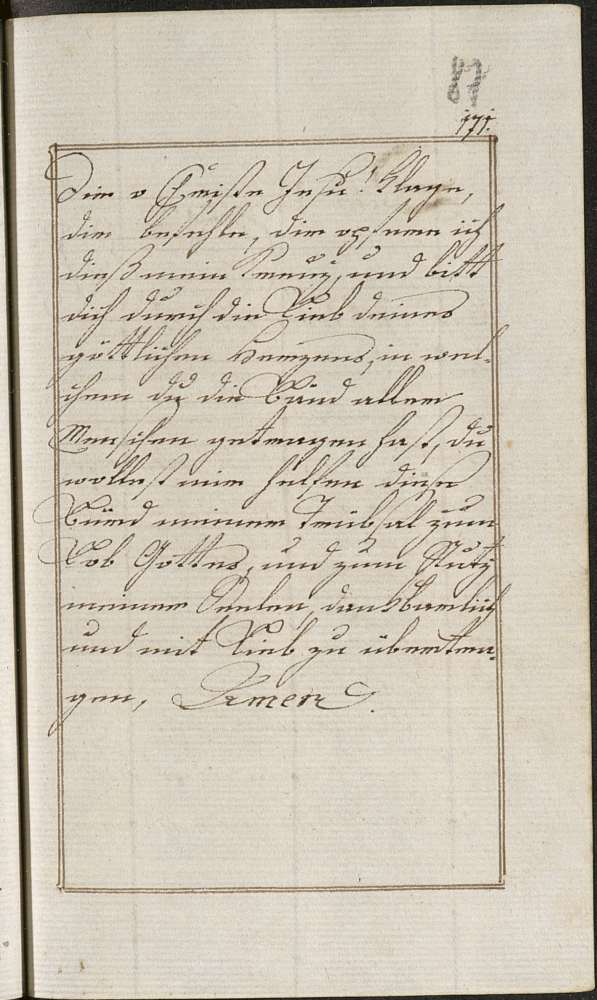 87
171.
Dir o Christe Jesu! klage,
dir befehle, dir opfere ich
dieß mein Kreuz, und bitt
dich durch die Lieb deines
göttlichen Herzens, in wel-
chem du die Bürd aller
Menschen getragen hast, du
wollest mir helfen diese
Bürd meiner Trübsal zum
Lob Gottes, und zum Nutz
meiner Seelen, dankbarlich
und mit Lieb zu übertra-
gen, Amen.